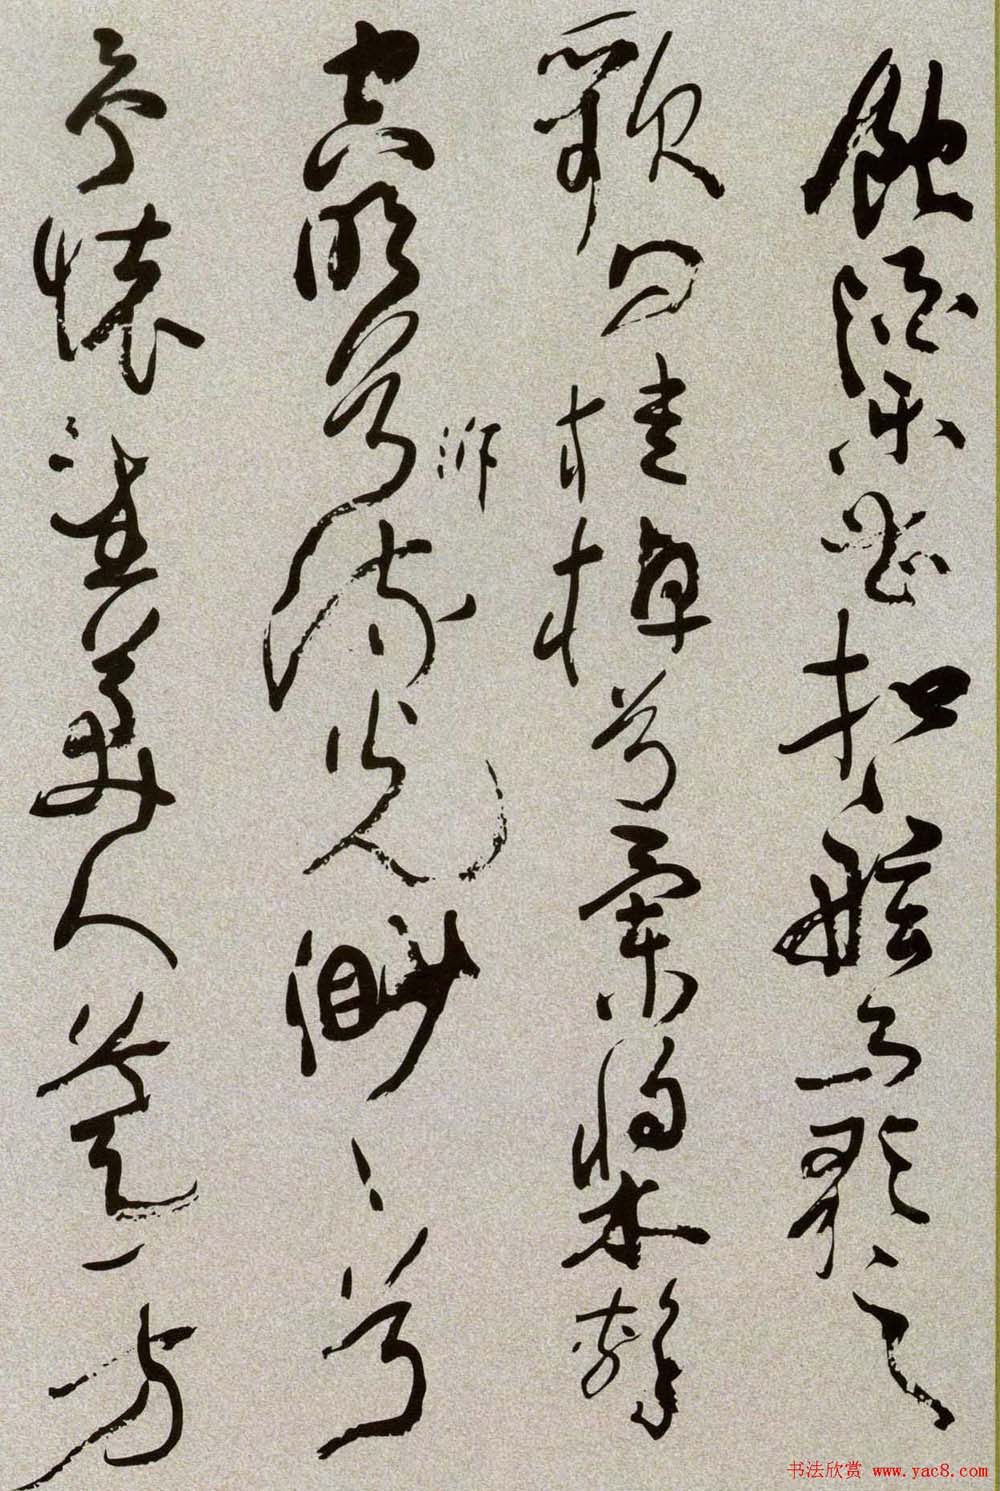 飲酒樂甚扣舷而歌之
歌曰桂棹兮蘭槳擊
空明兮泝流光渺〻兮
予懷望美人兮天一方
书法欣赏 www.yac8.com